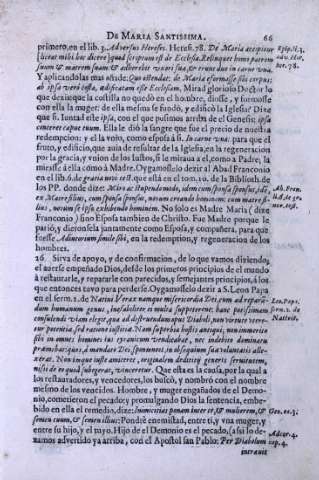 DE MARIA SANTISSIMA. 66
primero, en el lib. 3. Adversus Hereses. Heresi. 78. De Maria accipitur
licet mihi hoc dicere] quod scriptum est de Ecclesia. Relinquet homo patrem
suum & matrem suam: & adhærebit vxori suæ, & erunt duo in carne vna.
Y aplicandolas mas añade: Quo ostendat: de Maria eformasse sibi corpus:
ab ipsa verò costa, ædificatam esse Ecclesiam. Mirad glorioso Doctor lo
que dezis: que la costilla no quedò en el hombre, diosse, y formòse
con ella la muger: de ella mesma se fundò, y edificò la Iglesia? Dize
que si. Iuntad este ipsa, con el que pusimos arriba de el Genesis: ipsa
conteret caput tuum. Ella le diò la sangre que fue el precio de nuestra
redempcion: y el la vnio, como esposa à si. In carne vna: para que el
fruto, y edificio, que auia de resultar de la Iglesia, en la regeneracion
por la gracia, y vnion de los Iustos, si le miraua a el, como a Padre, la
mirasse à ella como à Madre. Oygamoselo dezir al Abad Franconio
en el lib. 6. de gratia
los PP. donde dize: Miro ac stupendo modo, idem cum sponsa sponsus,
ex Matre filius, cum sponsa sponsus, noster creando bonum: cum matre
No solo es Maria ( dize
Franconio ) sino Esposa tambien de Christo. Fue Madre porque le
pariò, y dieronsela juntamente como Esposa, y compañera, para que
fuesse Adiutorium simile sibi, en la redempcion, y regeneracion de los
hombres.
26. Sirva de apoyo, y de confirmacion, de lo que vamos diziendo,
el auerse empeñado Dios, desde los primeros principios de el mundo
à restaurarle, y repararle con parecidos, y semejantes principios, à los
que entonces tuvo para perderse. Oygamoselo dezir a S. Leon Papa
en el serm. 2. de Nativi Verax namque misericordia Dei, cum ad reparan-
dum humanum genus, ineffabiliter ei multa suppeterent: hanc potissimum
consulendi viam elegit, qua ad destruendum opus Diaboli, non virtute vtere-
tur potentiæ, sed ratione iustitiæ. Nam superbia hostis antiqui, non immeritò
sibi in omnes homines ius tyranicum vendicabat, nec indebito dominatu
premebat: quos, à mandato Dei, spontaneos, in obsequium suæ voluntatis alle-
xerat. Non itaque iustè amitteret, originalem dedititij generis seruitutem,
nisi de eo quod subegerat, vinceretur. Que esta es la causa, por la qual a
los restauradores, y vencedores, los buscò, y nombrò con el nombre
mesmo de los vencidos. Hombre, y muger engañados de el Demo-
nio, cometieron el pecado: y promulgando Dios la sentencia, embe-
bido en ella el remedio, dize: Inimicitias ponam inter te, & mulierem, &
semen tuum, & semen illius: Pondrè enemistad, entre ti, y vna muger, y
entre su hijo, y el tuyo. Hijo de el Demonio es el pecado, (assi lo de-
xamos advertido ya arriba, con el Apostol san Pablo: Per Diabolum
intrauit
Epip. li. 3.
adv. Hæ-
res. 78.
Ab. Fran.
li. 6. de gra
Leo. Pap.
ser. 2. de
Nativit.
Gen. c. 3.
cap. 4.